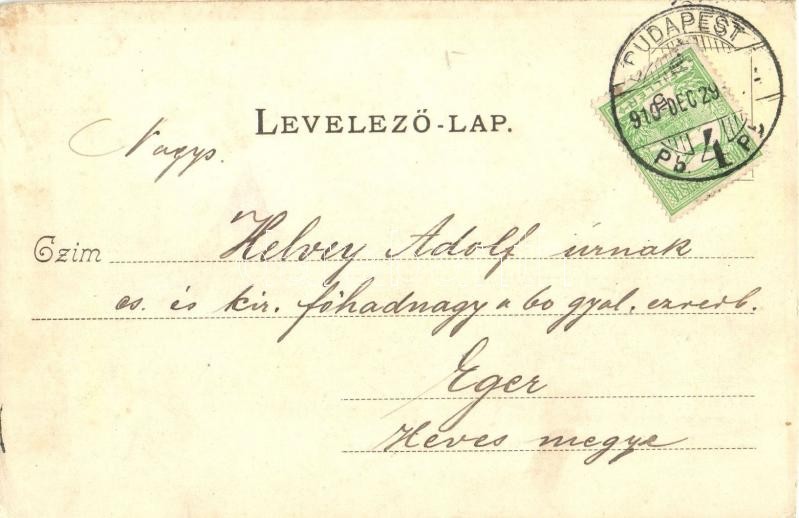 BUDAPEST
910 DEC 29
4
LEVELEZŐ-LAP.
Nagys.
Czim Helvey Adolf úrnak
cs. és kir. főhadnagy a 60 gyal. ezredb.
Eger
Heves megye